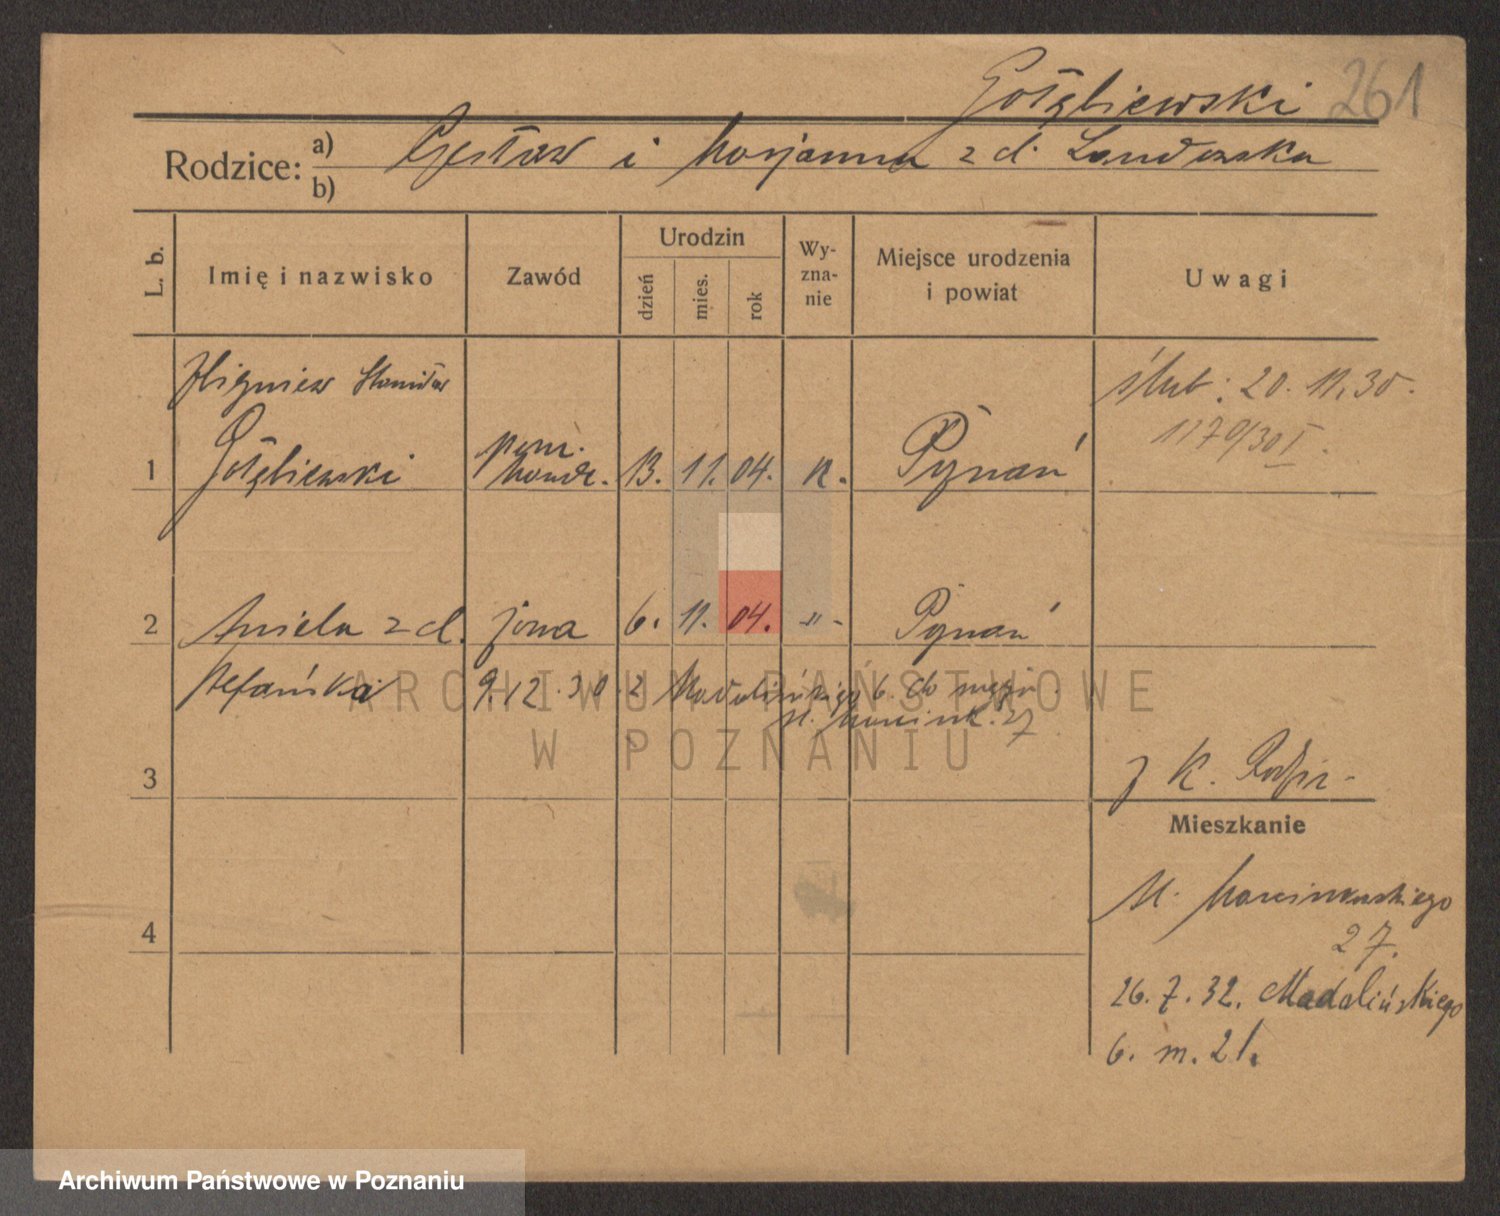 Gołębiewski 261
Rodzice: a) Czesław i Marjanna z d. Landowska
b)
L. b.
Imię i nazwisko
Zawód
Urodzin
dzień
mies.
rok
Wy-
zna-
nie
Miejsce urodzenia
i powiat
Uwagi
Zbigniew Stanisław
1 Gołębiewski pom. handl. 13. 11. 04. k. Poznań
ślub: 20. 11. 30.
1170/30 I.
2 Aniela z d. żona 6. 11. 04. -"- Poznań
Stefańska 9.12.30. z Madalińskiego 6. do męża
M. Marcink. 27
3
z K. Rodzic.
Mieszkanie
4
M. Marcinkowskiego
27.
26. 7. 32. Madalińskiego
6. m. 21.
ARCHIWUM PAŃSTWOWE
W POZNANIU
Archiwum Państwowe w Poznaniu